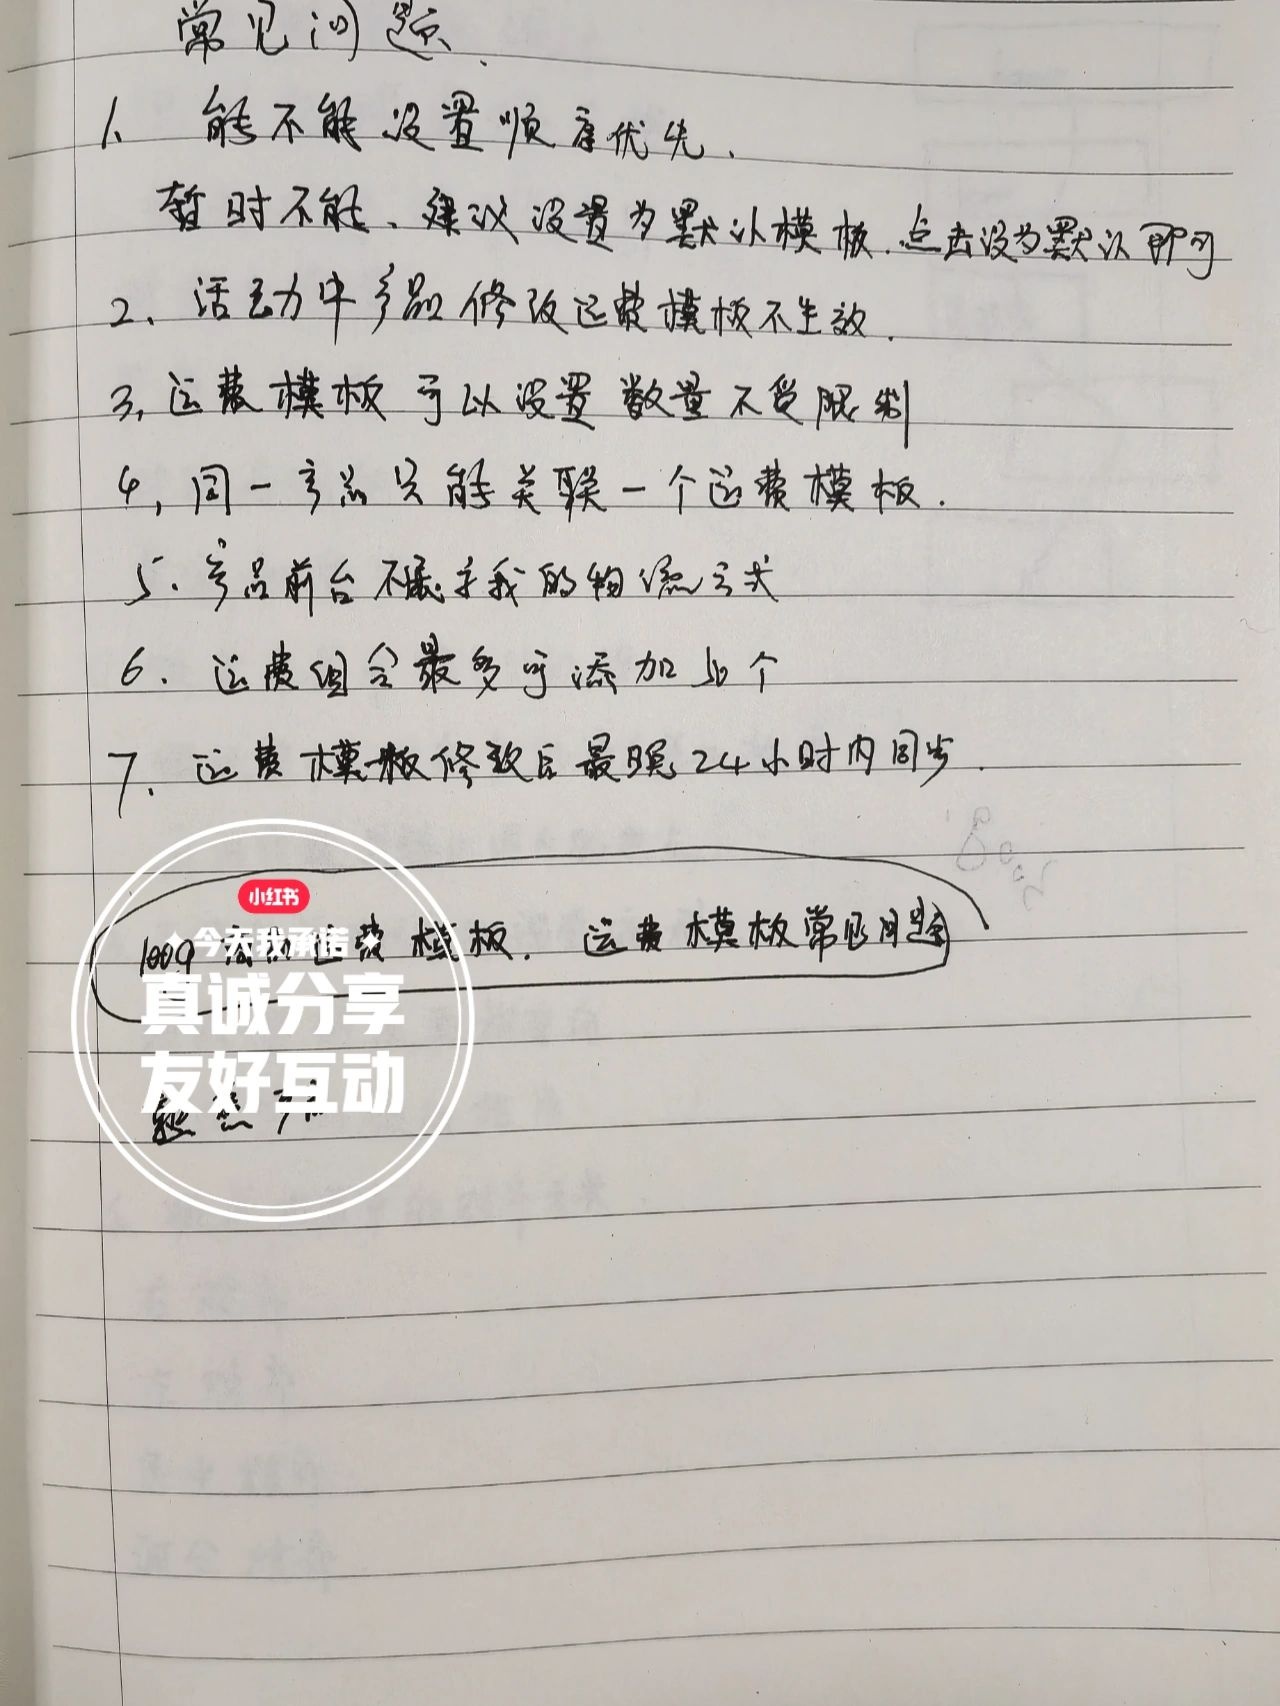 常见问题.
1、能不能设置顺序优先.
暂时不能、建议设置为默认模板.点击设为默认即可
2、活动中产品修改运费模板不生效.
3,运费模板可以设置数量不受限制
4,同一产品只能关联一个运费模板.
5、产品前台不展示我的物流方式
6.运费组合最多可添加50个
7.运费模板修改后最晚24小时内同步.
小红书
今天我承诺
真诚分享
友好互动
运费模板.运费模板常见问题